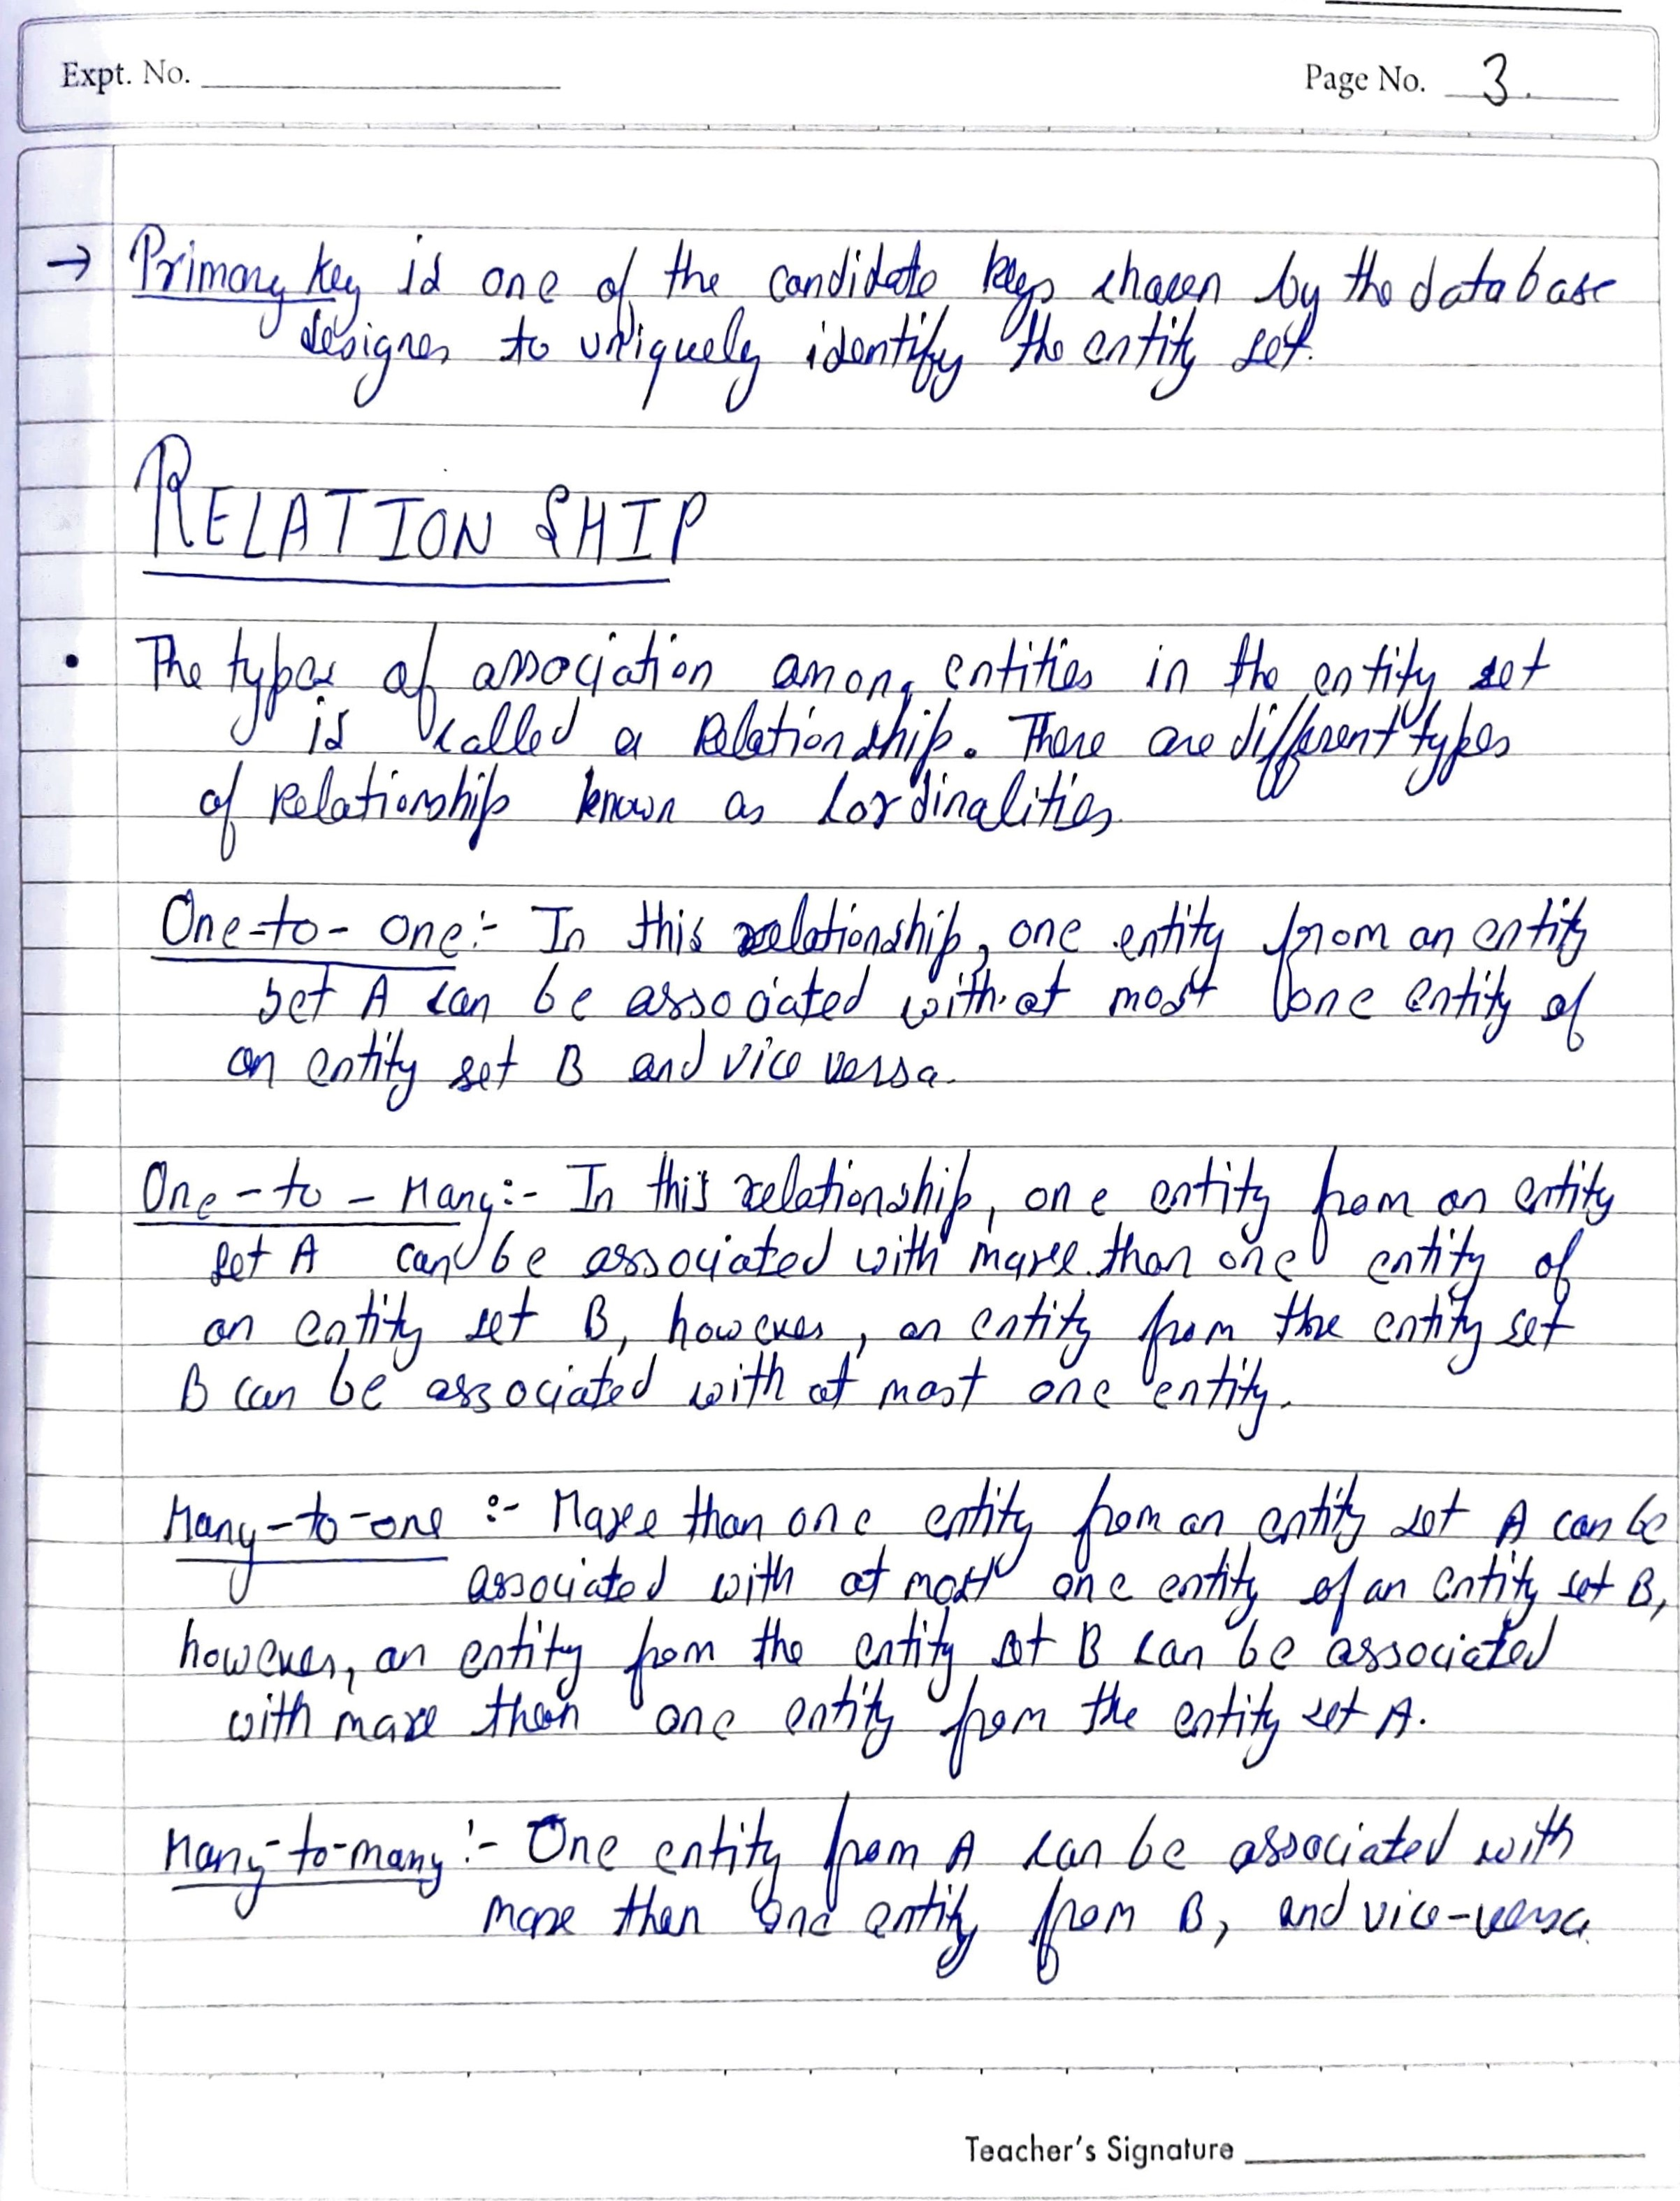 Expt. No.
Page No. 3.
→ Primary key is one of the candidate keys chosen by the database
designer to uniquely identify the entity set.
RELATIONSHIP
• The types of association among entities in the entity set
is called a Relationship. There are different types
of Relationship known as Cardinalities.
One-to-one:- In this relationship, one entity from an entity
set A can be associated with at most one entity of
an entity set B and vice versa.
One-to-Many:- In this relationship, one entity from an entity
set A can be associated with more than one entity of
an entity set B, however, an entity from the entity set
B can be associated with at most one entity.
Many-to-one :- More than one entity from an entity set A can be
associated with at most one entity of an entity set B,
however, an entity from the entity set B can be associated
with more than one entity from the entity set A.
Many-to-many:- One entity from A can be associated with
more than one entity from B, and vice-versa.
Teacher's Signature